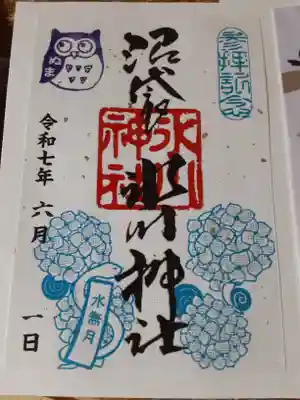 参拝祈念
沼袋氷川神社
氷川神社
ぬま
令和七年 六月 一日
水無月